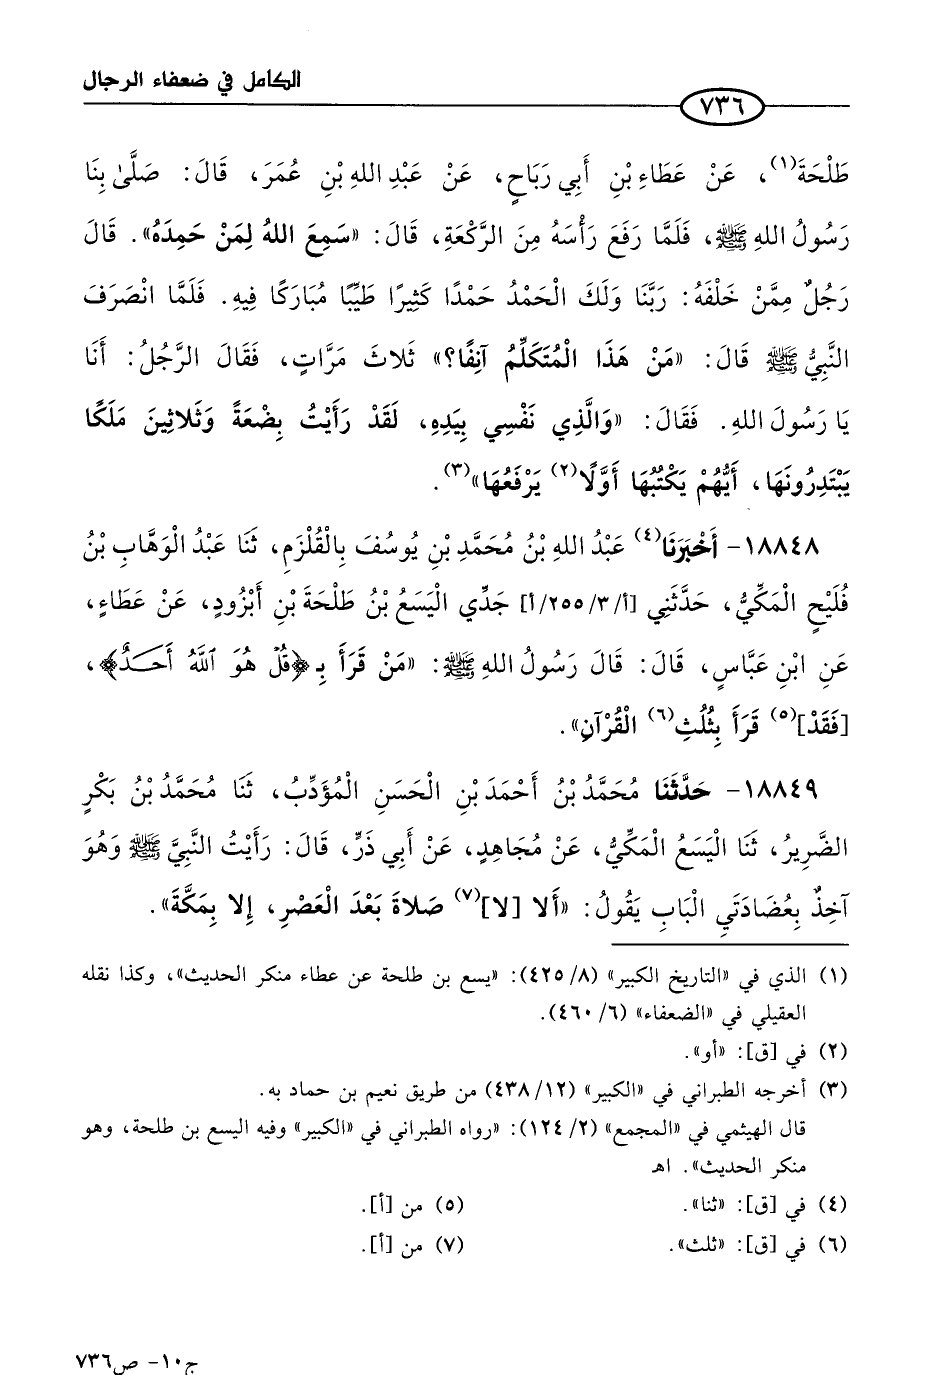 الكامل في ضعفاء الرجال
٧٣٦
طَلْحَةَ(١)، عَنْ عَطَاءِ بْنِ أَبِي رَبَاحٍ، عَنْ عَبْدِ اللهِ بْنِ عُمَرَ، قَالَ: صَلَّىٰ بِنَا
رَسُولُ اللهِ ﷺ، فَلَمَّا رَفَعَ رَأْسَهُ مِنَ الرَّكْعَةِ، قَالَ: «سَمِعَ اللهُ لِمَنْ حَمِدَهُ». قَالَ
رَجُلٌ مِمَّنْ خَلْفَهُ: رَبَّنَا وَلَكَ الْحَمْدُ حَمْدًا كَثِيرًا طَيِّبًا مُبَارَكًا فِيهِ. فَلَمَّا انْصَرَفَ
النَّبِيُّ ﷺ قَالَ: «مَنْ هَذَا الْمُتَكَلِّمُ آنِفًا؟» ثَلاثَ مَرَّاتٍ، فَقَالَ الرَّجُلُ: أَنَا
يَا رَسُولَ اللهِ. فَقَالَ: «وَالَّذِي نَفْسِي بِيَدِهِ، لَقَدْ رَأَيْتُ بِضْعَةً وَثَلاثِينَ مَلَكًا
يَبْتَدِرُونَهَا، أَيُّهُمْ يَكْتُبُهَا أَوَّلًا(٢) يَرْفَعُهَا»(٣).
١٨٨٤٨- أَخْبَرَنَا(٤) عَبْدُ اللهِ بْنُ مُحَمَّدِ بْنِ يُوسُفَ بِالْقُلْزَمِ، ثَنَا عَبْدُ الْوَهَّابِ بْنُ
فُلَيْحٍ الْمَكِّيُّ، حَدَّثَنِي [أ/٢٥٥/٣/أ] جَدِّي الْيَسَعُ بْنُ طَلْحَةَ بْنِ أَبْزُودٍ، عَنْ عَطَاءٍ،
عَنِ ابْنِ عَبَّاسٍ، قَالَ: قَالَ رَسُولُ اللهِ ﷺ: «مَنْ قَرَأَ بِـ ﴿قُلْ هُوَ ٱللَّهُ أَحَدٌ﴾،
[فَقَدْ](٥) قَرَأَ بِثُلُثِ(٦) الْقُرْآنِ».
١٨٨٤٩- حَدَّثَنَا مُحَمَّدُ بْنُ أَحْمَدَ بْنِ الْحَسَنِ الْمُؤَدِّبُ، ثَنَا مُحَمَّدُ بْنُ بَكْرٍ
الضَّرِيرُ، ثَنَا الْيَسَعُ الْمَكِّيُّ، عَنْ مُجَاهِدٍ، عَنْ أَبِي ذَرٍّ، قَالَ: رَأَيْتُ النَّبِيَّ ﷺ وَهُوَ
آخِذٌ بِعُضَادَتَيِ الْبَابِ يَقُولُ: «أَلا [لا](٧) صَلاةَ بَعْدَ الْعَصْرِ، إِلا بِمَكَّةَ».
(١) الذي في «التاريخ الكبير» (٤٢٥/٨): «يسع بن طلحة عن عطاء منكر الحديث»، وكذا نقله
العقيلي في «الضعفاء» (٤٦٠/٦).
(٢) في [ق]: «أو».
(٣) أخرجه الطبراني في «الكبير» (٤٣٨/١٢) من طريق نعيم بن حماد به.
قال الهيثمي في «المجمع» (١٢٤/٢): «رواه الطبراني في «الكبير» وفيه اليسع بن طلحة، وهو
منكر الحديث». اهـ
(٤) في [ق]: «ثنا». (٥) من [أ].
(٦) في [ق]: «ثلث». (٧) من [أ].
ج١٠- ص٧٣٦